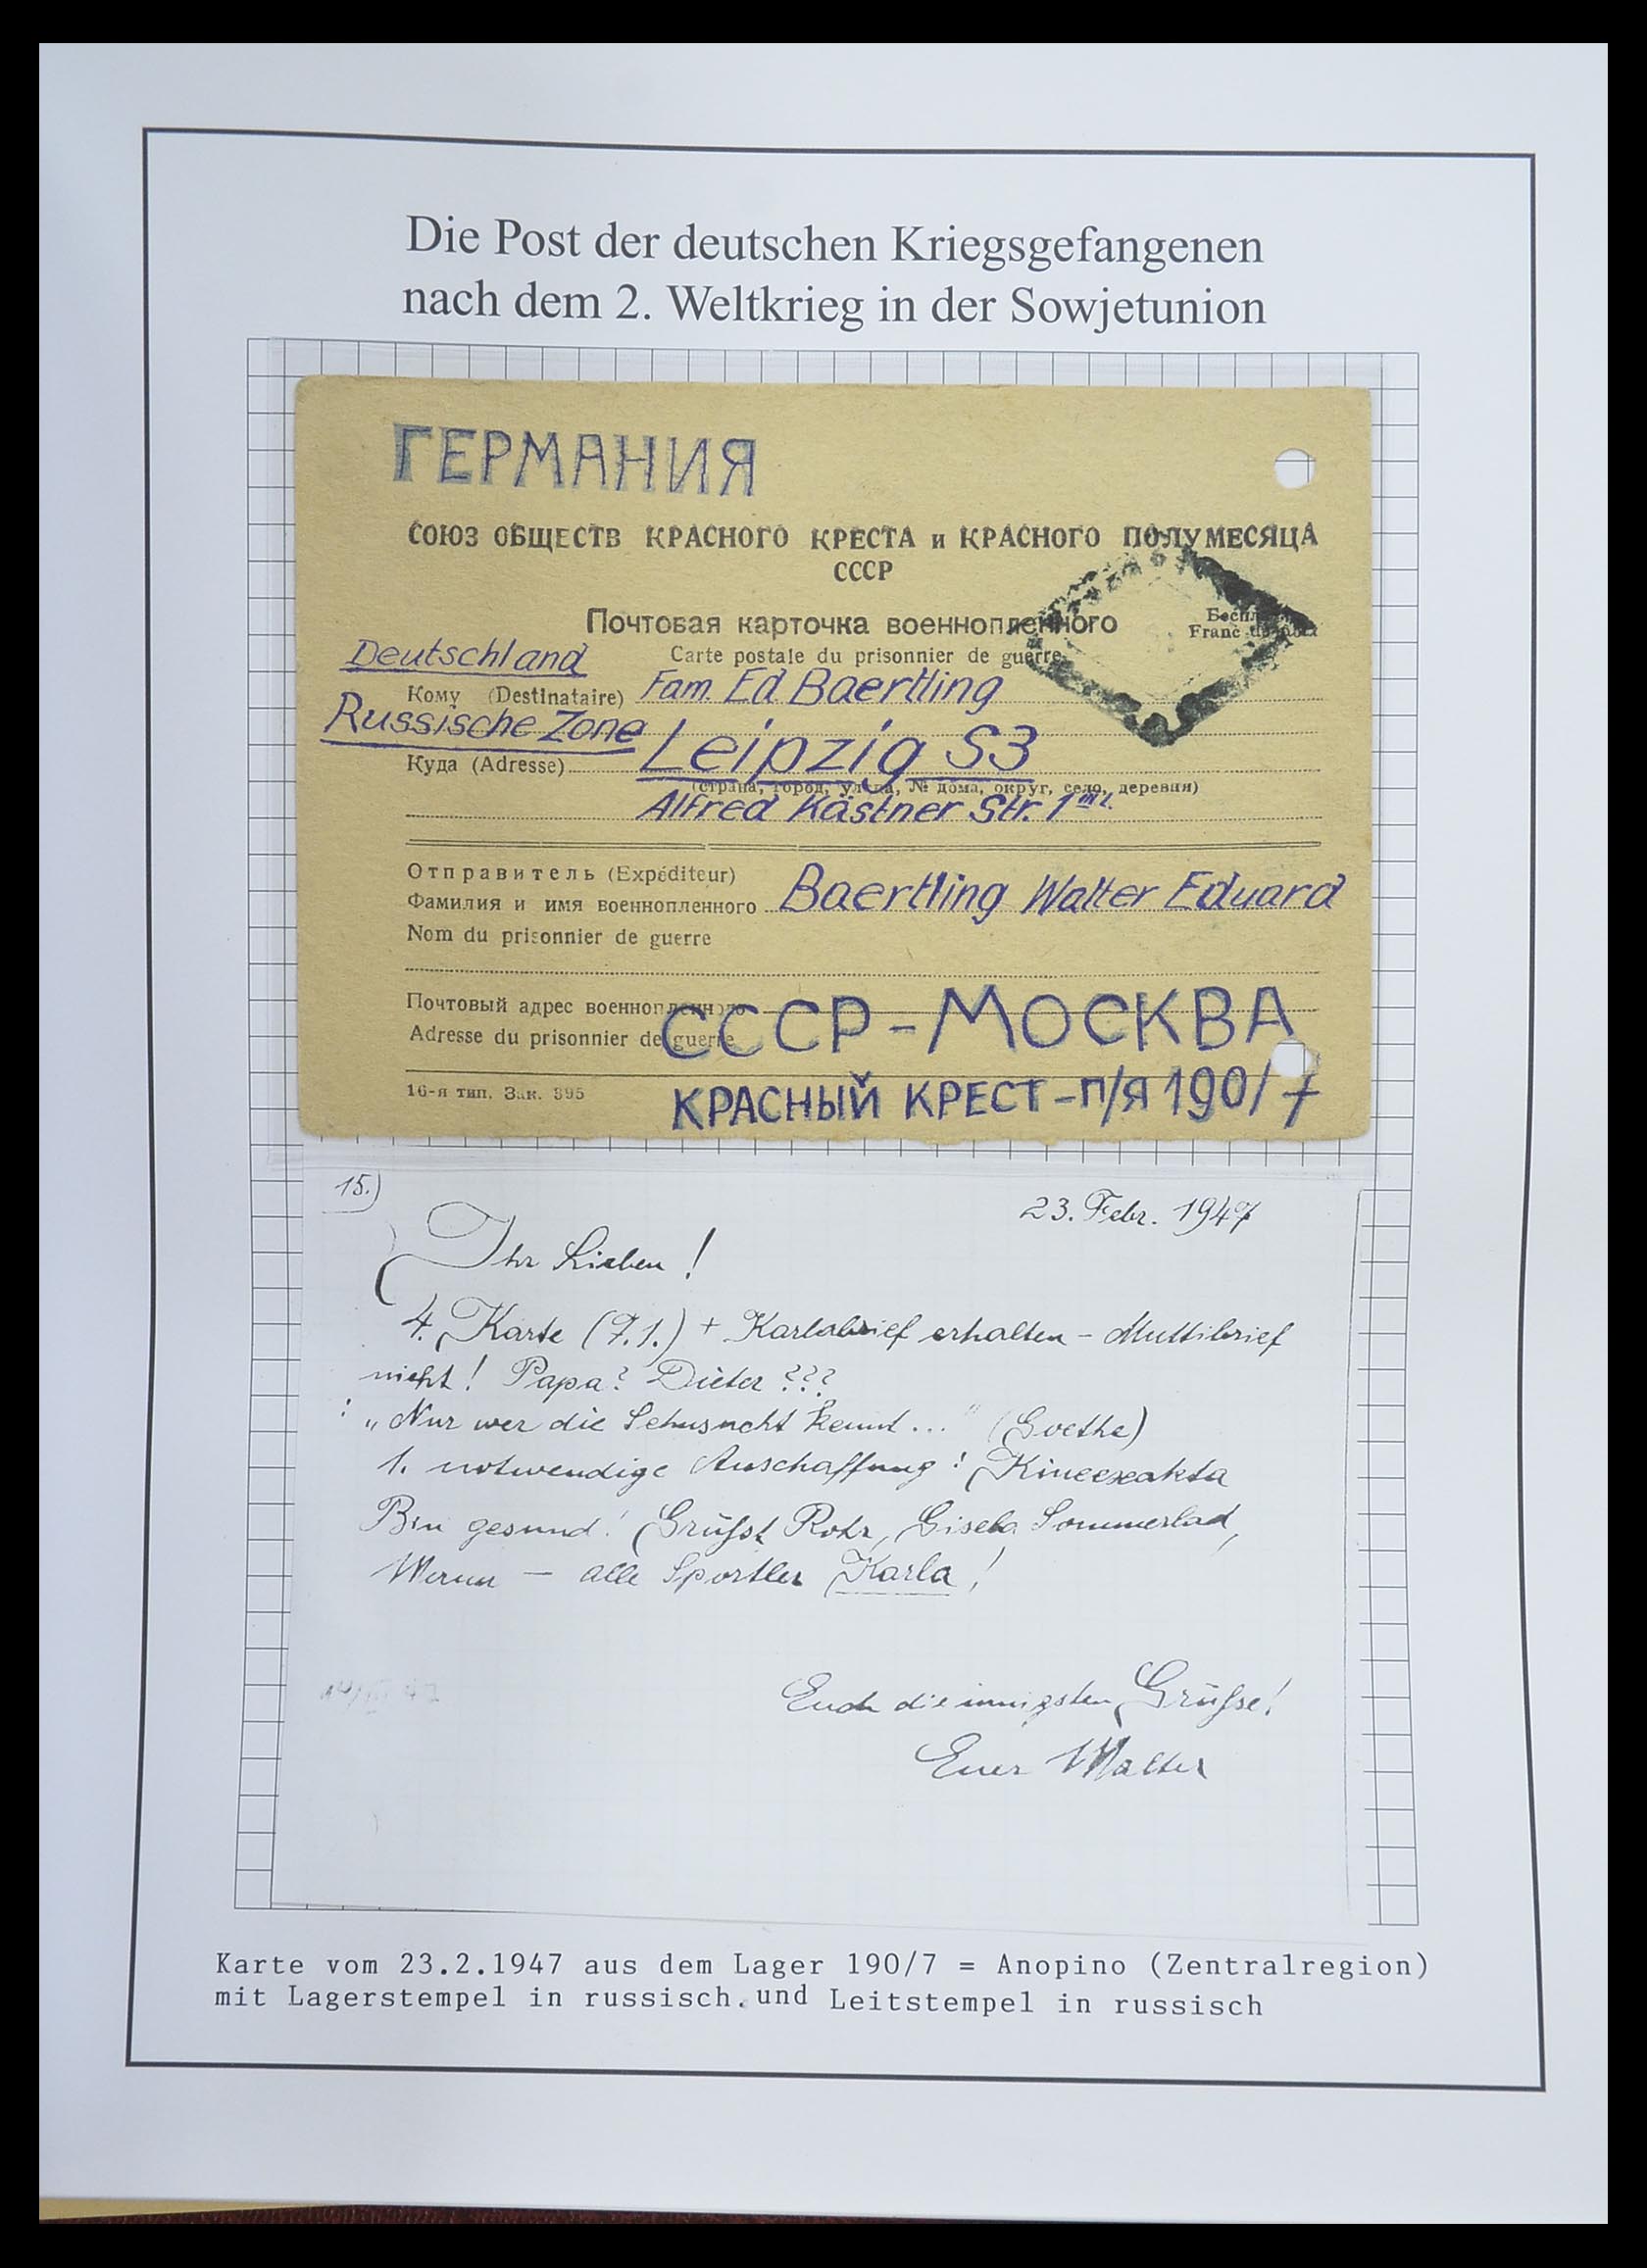 Die Post der deutschen Kriegsgefangenen
nach dem 2. Weltkrieg in der Sowjetunion
ГЕРМАНИЯ
СОЮЗ ОБЩЕСТВ КРАСНОГО КРЕСТА и КРАСНОГО ПОЛУМЕСЯЦА
СССР
Почтовая карточка военнопленного
Carte postale du prisonnier de guerre
Franc de
Deutschland
Кому (Destinataire) Fam. Ed. Baertling
Russische Zone
Куда (Adresse) Leipzig S3
(страна, город, улица, № дома, округ, село, деревня)
Alfred Kästner Str. 1
Отправитель (Expéditeur)
Фамилия и имя военнопленного Baertling Walter Eduard
Nom du prisonnier de guerre
Почтовый адрес военнопленного
Adresse du prisonnier de guerre СССР-МОСКВА
16-я тип. Зак. 395 КРАСНЫЙ КРЕСТ-П/Я 190/7
15.)
23. Febr. 1947
Ihr Lieben!
4. Karte (7.1.) + Karlabrief erhalten - Muttibrief
nicht! Papa? Dieter ???
: „Nur wer die Sehnsucht kennt..." (Goethe)
1. notwendige Anschaffung! Kineexakta
Bin gesund! Grüßt Rohr, Gisela Sommerlad,
— alle Sportler Karla!
Euch die innigsten Grüße!
Euer Walter
Karte vom 23.2.1947 aus dem Lager 190/7 = Anopino (Zentralregion)
mit Lagerstempel in russisch.und Leitstempel in russisch